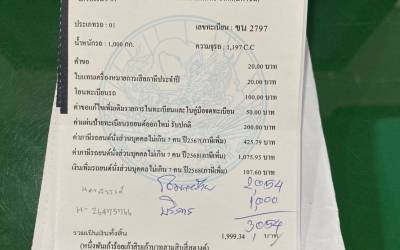 ประเภทรถ : 01 เลขทะเบียน : ขน 2797
น้ำหนักรถ : 1,000 กก. ความจุรถ : 1,197 C.C
ค่าขอ 20.00 บาท
ใบแทนเครื่องหมายการเสียภาษีประจำปี 20.00 บาท
โอนทะเบียนรถ 100.00 บาท
ค่าขอแก้ไขเพิ่มเติมรายการในทะเบียนและใบคู่มือจดทะเบียน 50.00 บาท
ค่าแผ่นป้ายทะเบียนรถยนต์ออกใหม่ รับปกติ 200.00 บาท
ค่าภาษีรถยนต์นั่งส่วนบุคคลไม่เกิน 7 คน ปี2567(ภาษีเพิ่ม) 425.79 บาท
ค่าภาษีรถยนต์นั่งส่วนบุคคลไม่เกิน 7 คน ปี2568(ภาษีเพิ่ม) 1,075.95 บาท
เงินเพิ่มรถยนต์นั่งส่วนบุคคลไม่เกิน 7 คน ปี2568(ภาษีเพิ่ม) 107.60 บาท
นครสวรรค์ 2,054
บริการ 1,000
3,054
บาท
รวมเป็นเงินทั้งสิ้น 1,999.34
(หนึ่งพันเก้าร้อยเก้าสิบเก้าบาทสามสิบสี่สตางค์)